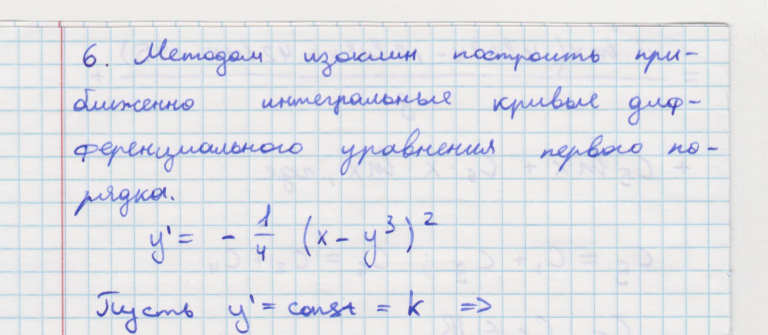 6. Методом изоклин построить при-
ближенно интегральные кривые диф-
ференциального уравнения первого по-
рядка.
y' = - 1/4 (x - y³)²
Пусть y' = const = k =>